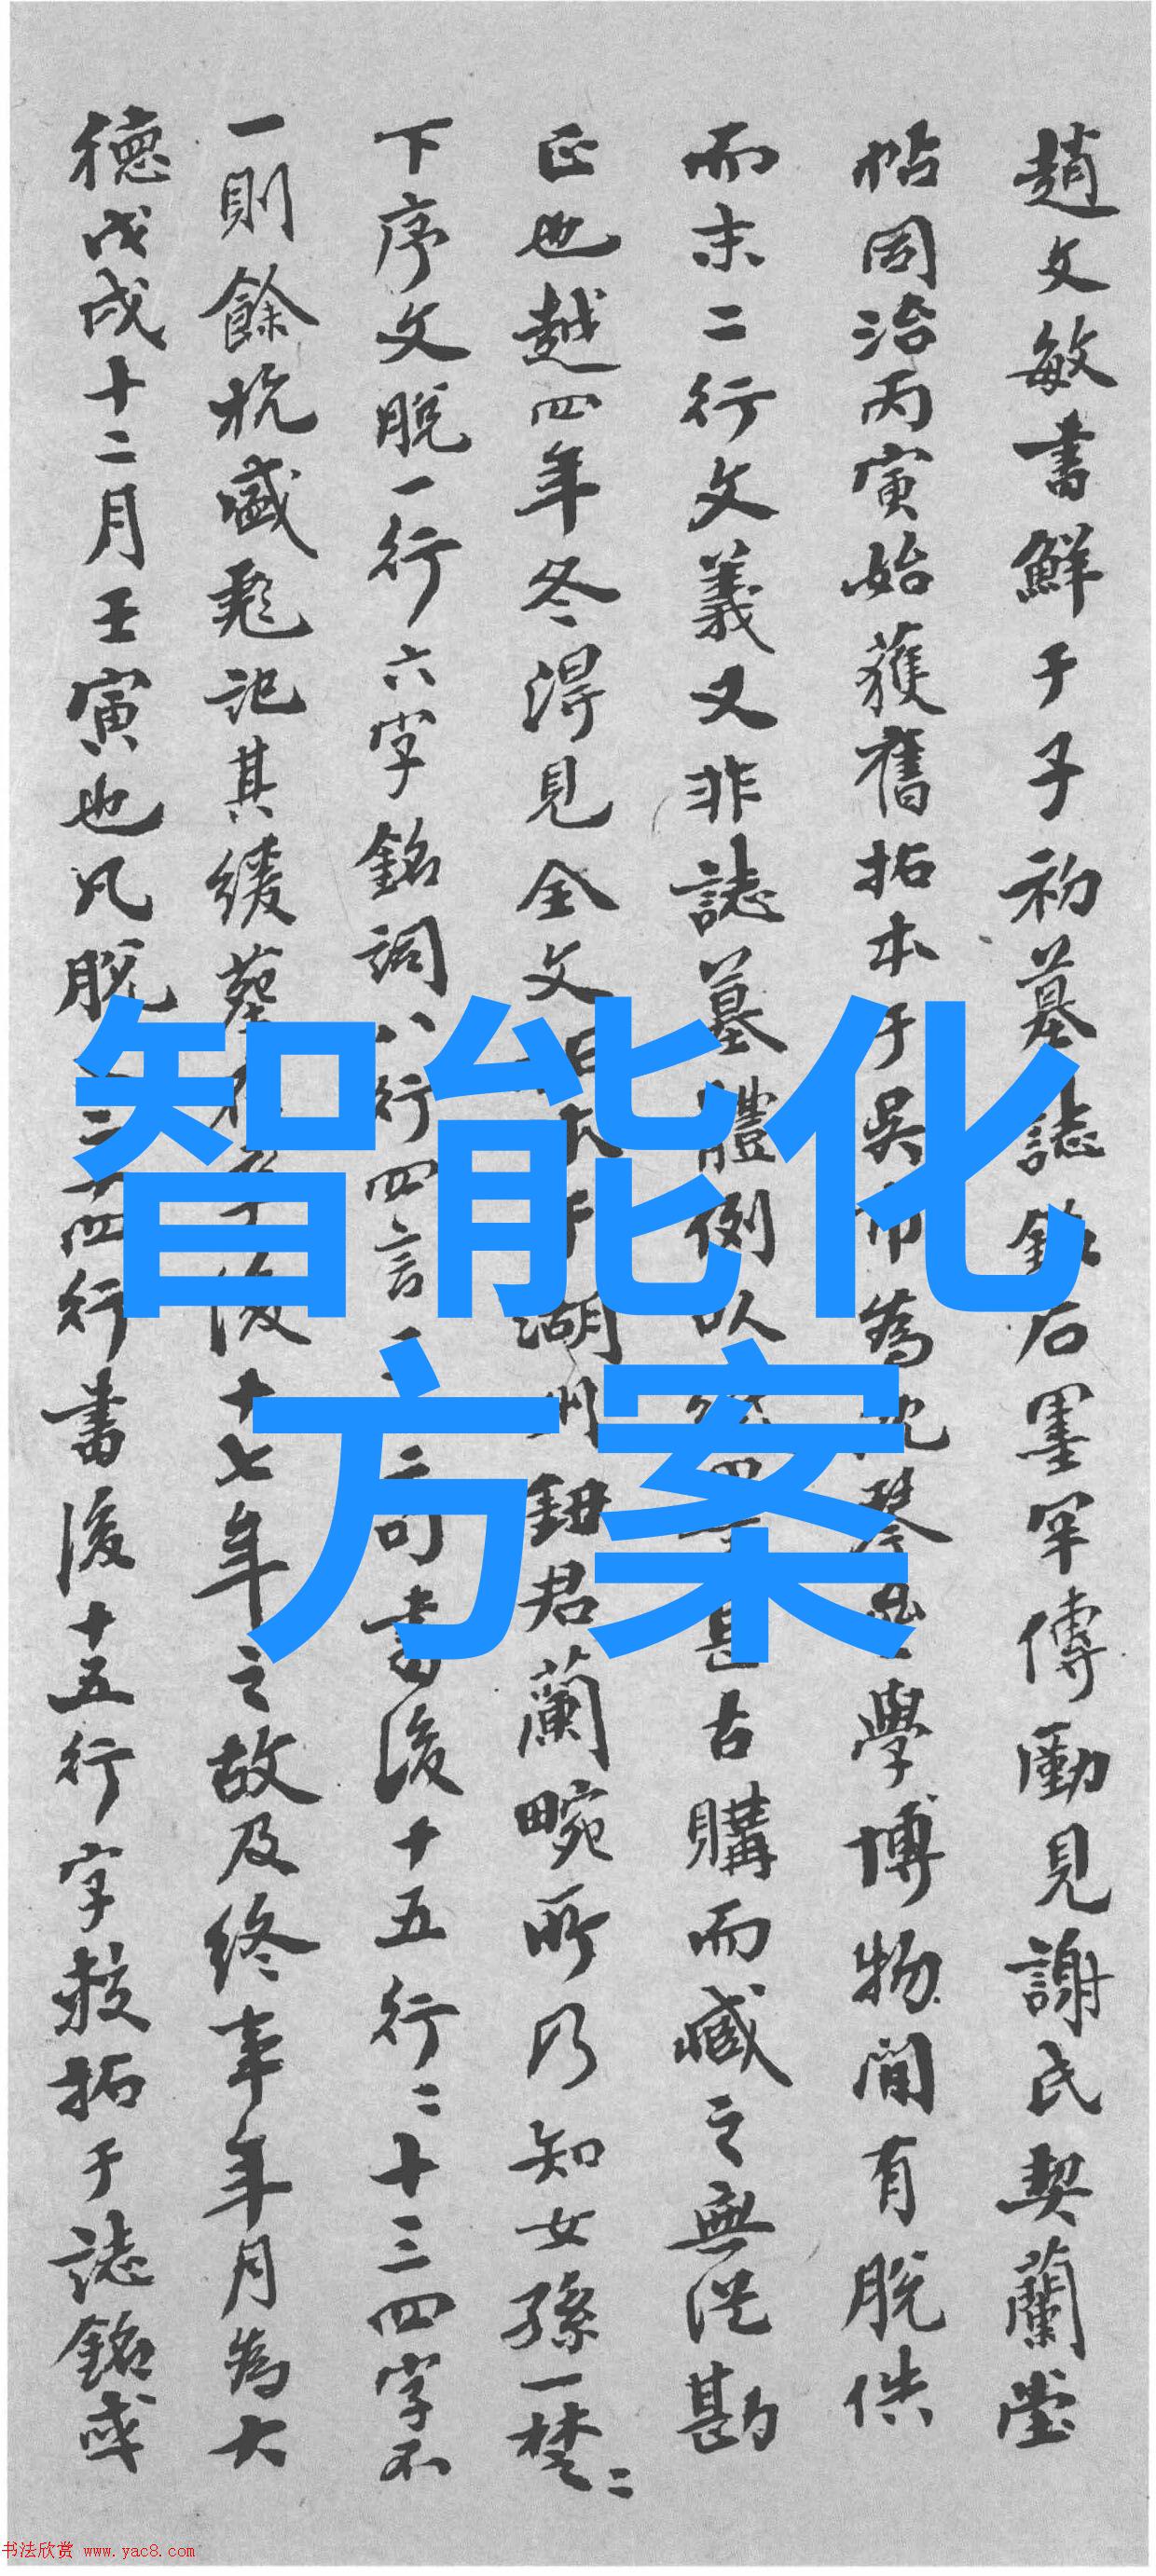 趙文敏書鮮于子初墓誌銘石墨罕傳勵見謝氏契蘭堂
帖同治丙寅始獲舊拓本于吳市為沈琴學博物間有脫佚
而末二行文義又非誌墓體例以四字甚古購而藏之無從勘
正也越四年冬得見全文湖州鈕君蘭畹所乃知女孫一樷二
下序文脫一行六字銘詞八行四言三句書後十五行二十三四字不
一則餘杭盛彪記其緩葬後十七年之故及終事年月為大
德戊戌十二月壬寅也凡脫四行書後十五行字數拓于誌銘或
智能化
方案
书法欣赏 www.yac8.com